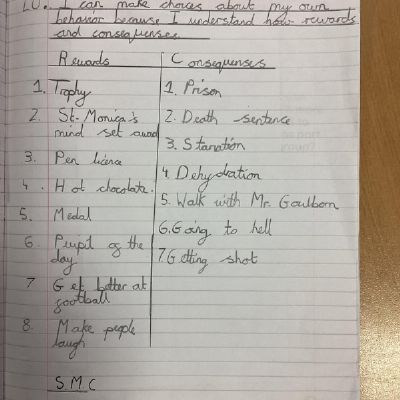 LO. I can make choices about my own
behavior because I understand how rewards
and consequenses.
Rewards
Consequenses
1. Trophy
2. St. Monica's
mind set award
3. Pen licence
4. Hot chocolate.
5. Medal
6. Pupil of the
day
7 Get better at
football
8. Make people
laugh
1. Prison
2. Death sentence
3. Starvation
4 Dehydration
5. Walk with Mr. Goulborn
6. Going to hell
7. Getting shot
S.M.C